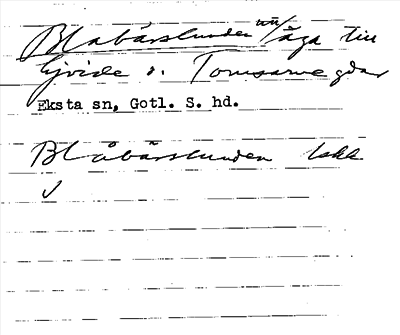 Blåbärslunden äga till
Gjvide o. Tomsarve gdar
Eksta sn, Gotl. S. hd.
Blåbärslunden 1skk